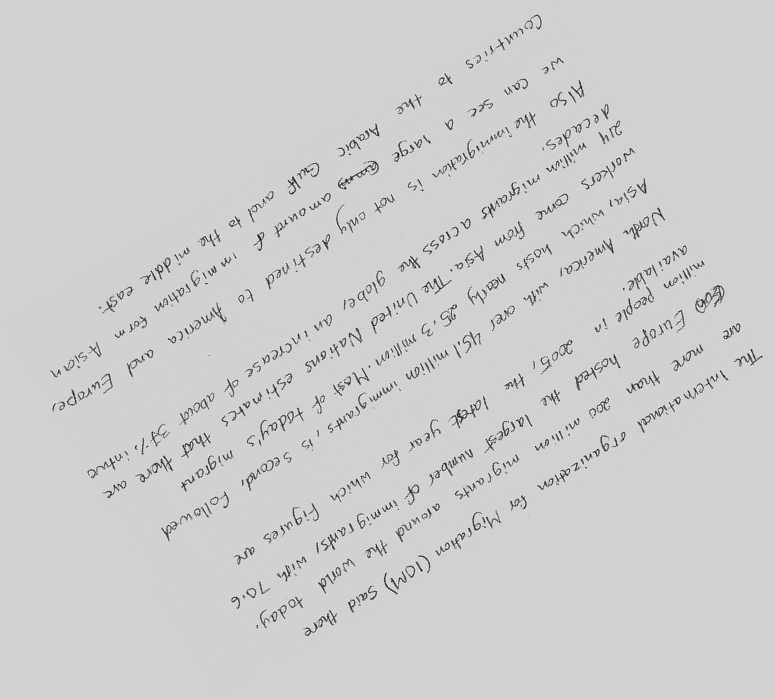 The International organization for Migration (IOM) said there
are more than 200 million migrants around the world today.
Europe hosted the largest number of immigrants, with 70.6
million people in 2005, the latest year for which figures are
available.
North America, with over 45.1 million immigrants, is second, followed
Asia, which hosts nearly 25.3 million. Most of today's migrant
workers come from Asia. The United Nations estimates that there are
214 million migrants across the globe, an increase of about 37%. intwo
decades.
Also the immigration is not only destined to America and Europe,
we can see a large amount of immigration form Asian
Countries to the Arabic Gulf and to the middle east.